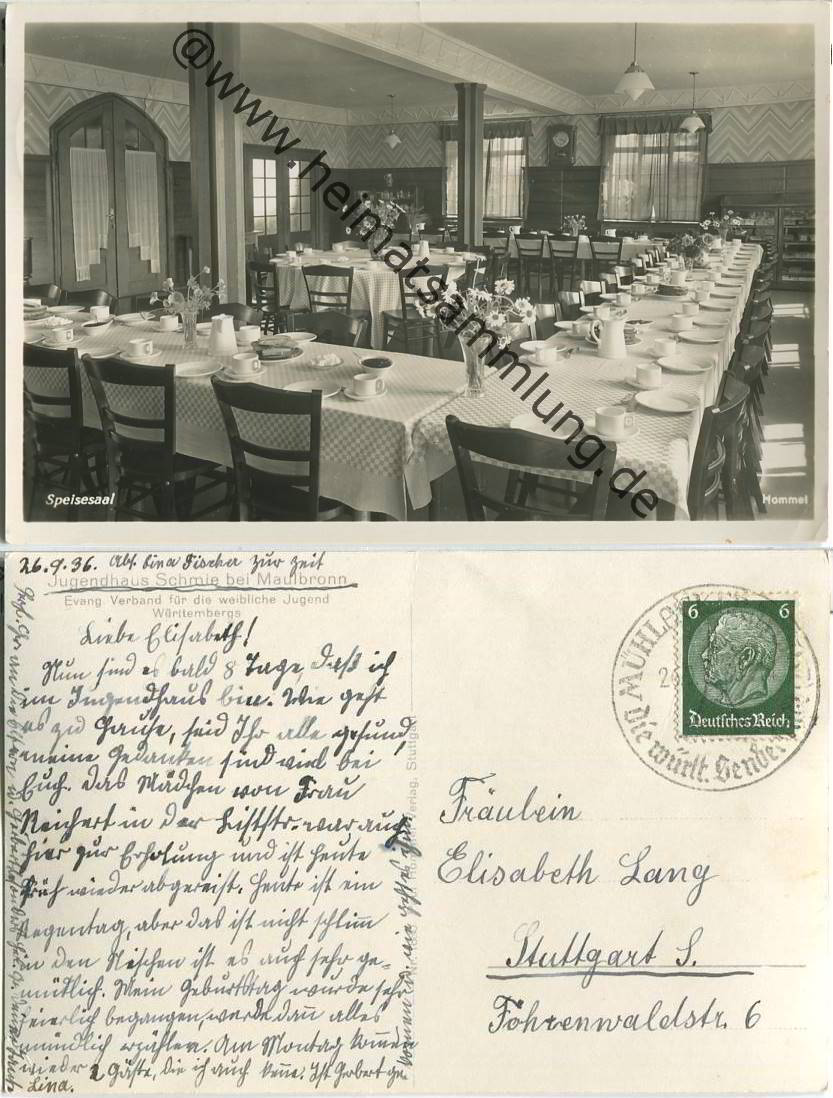 @www.heimatsammlung.de
Speisesaal
Hommel
26.9.36. Abs. Lina Fischer zur Zeit
Jugendhaus Schmie bei Maulbronn
Evang. Verband für die weibliche Jugend
Württembergs
Liebe Elisabeth!
Nun sind es bald 8 Tage, daß ich
im Jugendhaus bin. Wie geht
es zu Hause, seid Ihr alle gesund,
meine Gedanken sind viel bei
Euch. Das Mädchen von Frau
Reichert in der Liststr. war auch
hier zur Erholung und ist heute
früh wieder abgereist. Heute ist ein
Regentag, aber das ist nicht schlimm
in den Nischen ist es auch sehr ge-
mütlich. Mein Geburtstag wurde sehr
feierlich begangen, werde dann alles
mündlich erzählen. Am Montag kommen
wieder 2 Gäste, die ich auch kenne. Ist Herbert ge-
kommen u. wie geht es
Lina.
Verlag, Stuttgart
MÜHLACKER
die württ. Sender
6 6
Deutsches Reich
Fräulein
Elisabeth Lang
Stuttgart S.
Föhrenwaldstr. 6